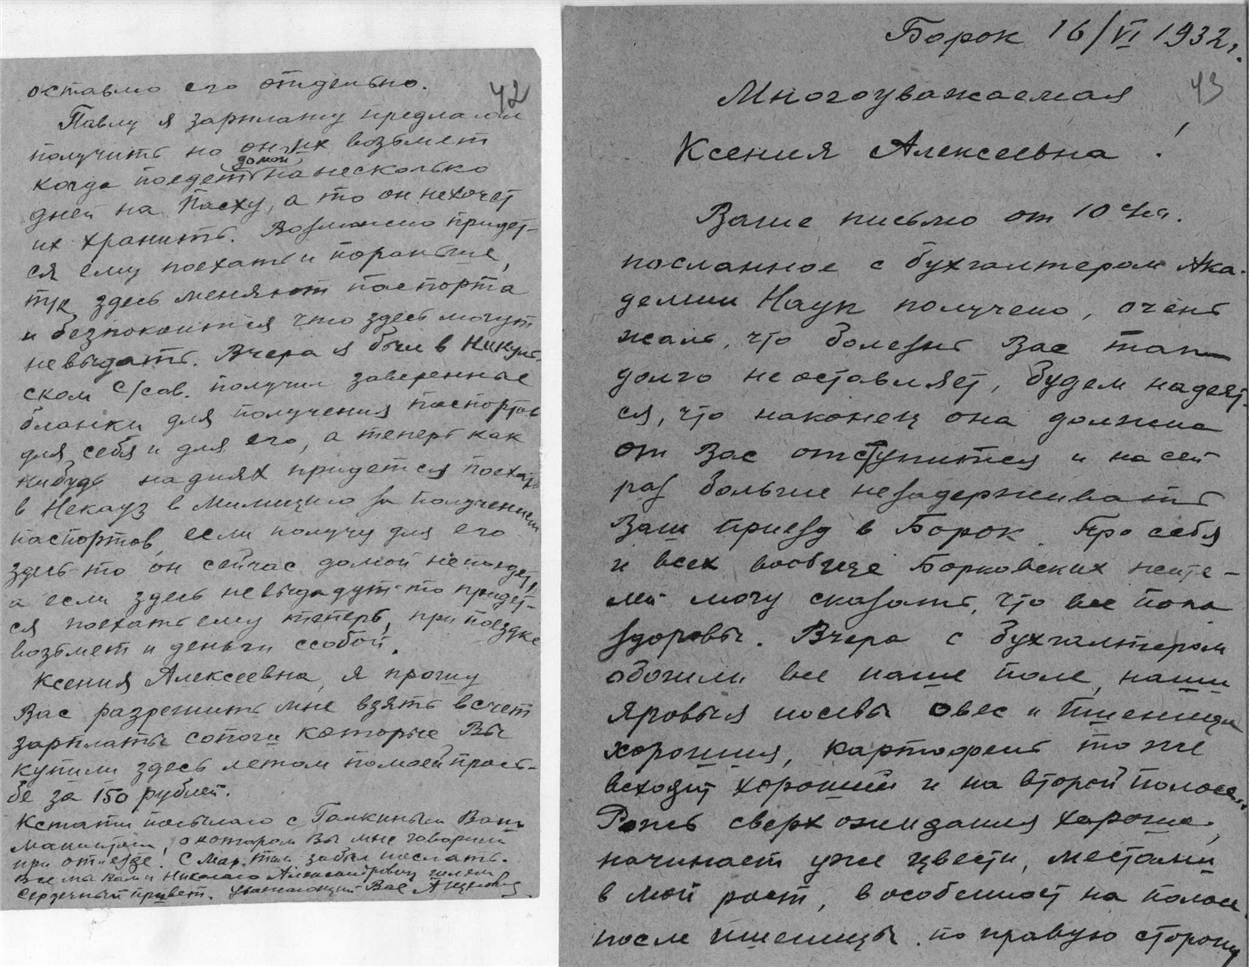 42
оставлю его отдельно.
Павлу я зарплату предлагал
получить но он их возьмет
когда поедет домой на несколько
дней на Пасху, а то он не хочет
их хранить. Возможно придет-
ся ему поехать и пораньше,
тук здесь меняют паспорта
и безпокоится что здесь могут
невыдать. Вчера я был в Никуль-
ском с/сав. получил заверенные
бланки для получения паспортов
для себя и для его, а теперь как
нибудь на днях придется поехать
в Некауз в Милицию за получением
паспортов, если получу для его
здесь то он сейчас домой непоедет,
а если здесь невыдадут то придет-
ся поехать ему теперь, при поездке
возьмет и деньги ссобой.
Ксения Алексеевна, я прошу
Вас разрешить мне взять всчет
зарплаты сапоги которые Вы
купили здесь летом помоей прось-
бе за 150 рублей.
Кстати посылаю с Галкиным Вам
о котором Вы мне говорили
при отъезде. С забыл послать.
Все мы Вам и Николаю Александровичу шлем
сердечный привет. Уважающий Вас
43
Борок 16/VI 1932г.
Многоуважаемая
Ксения Алексеевна!
Ваше письмо от 10
посланное с бухгалтером Ака-
демии Наук получено, очень
жаль, что болезнь Вас так
долго не оставляет, будем надеят-
ся, что наконец она должна
от Вас отступится и на сей
раз больше незадерживать
Ваш приезд в Борок. Про себя
и всех вообще Борковских жите-
лей могу сказать, что все пока
здоровы. Вчера с бухгалтером
обошли все наше поле, наши
яровыя посевы овес и пшеница
хорошия, картофель тоже
всходит хороший и на второй полосе.
Рожь сверх ожидания хороша,
начинает уже цвести, местами
в мой рост, в особенност на полосе
после пшеницы по правую сторону